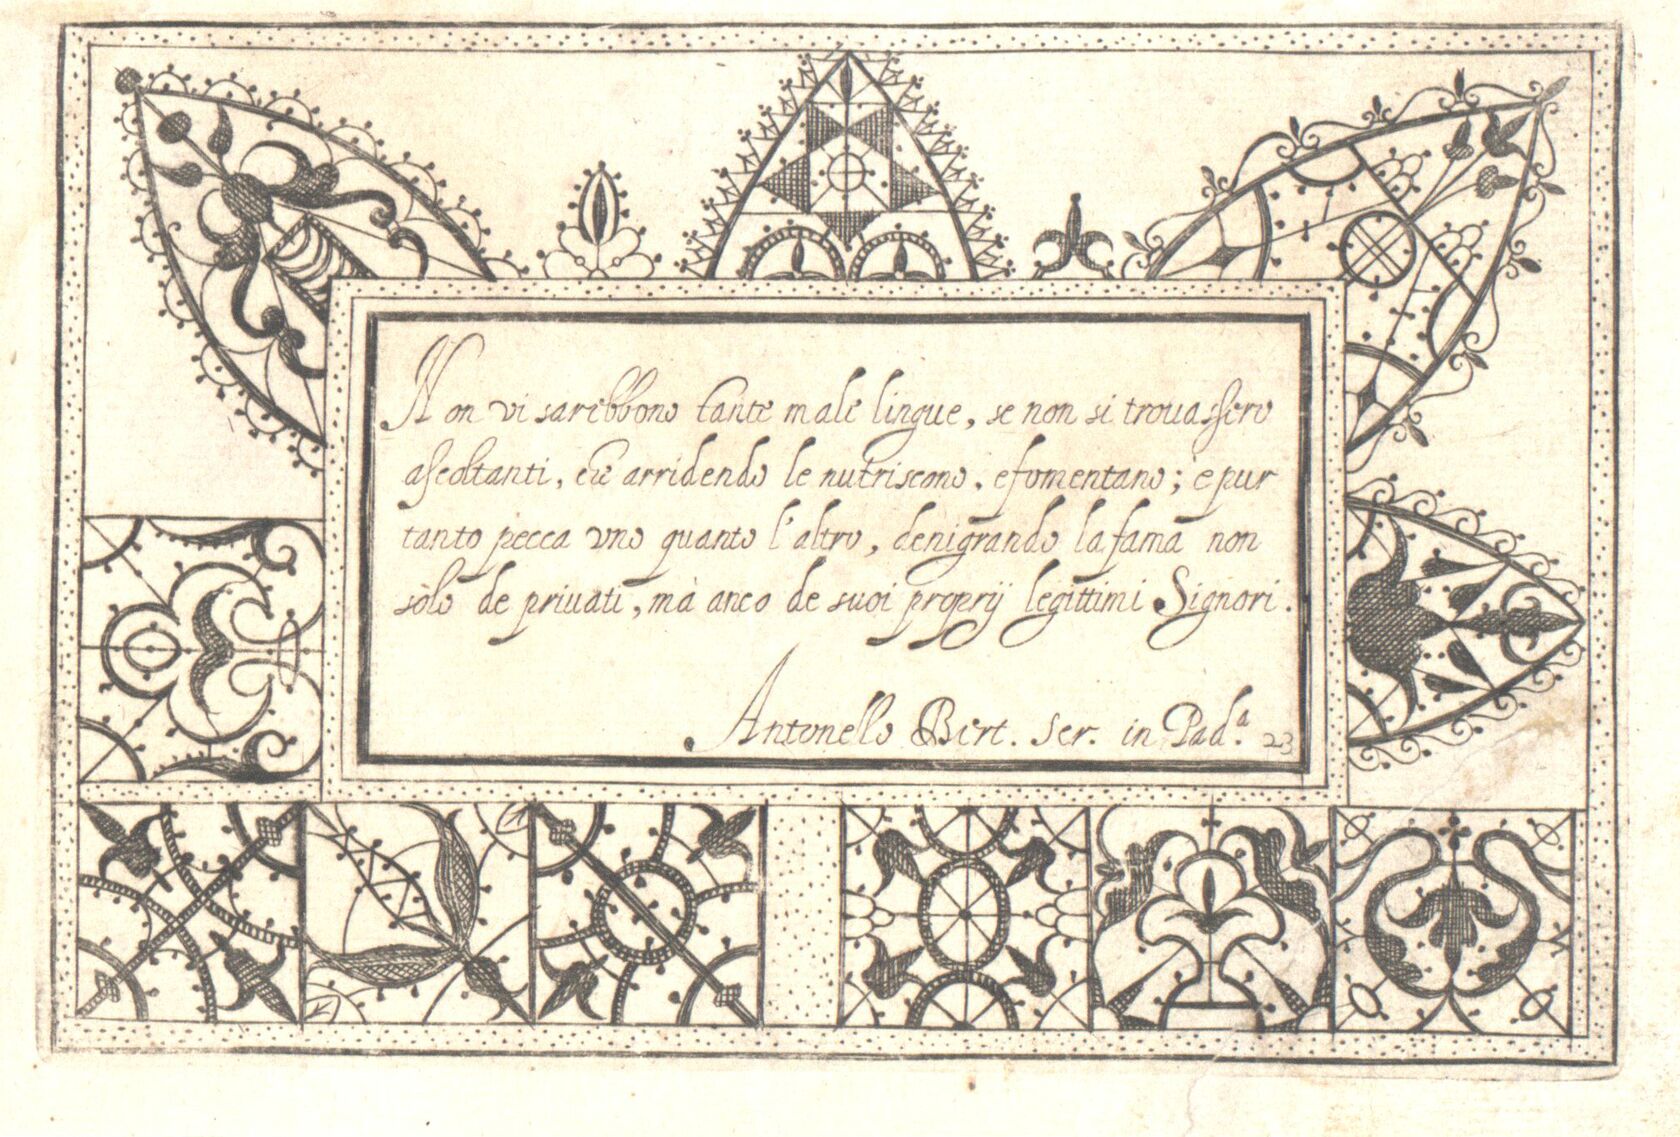 Non vi sarebbono tante male lingue, se non si trouassero
ascoltanti, che arridendo le nutriscono, e fomentano; e pur
tanto pecca vno quanto l'altro, denigrando la fama non
solo de priuati, mà anco de suoi proprij legittimi Signori.
Antonello Bert. scr. in Pad.ª 23